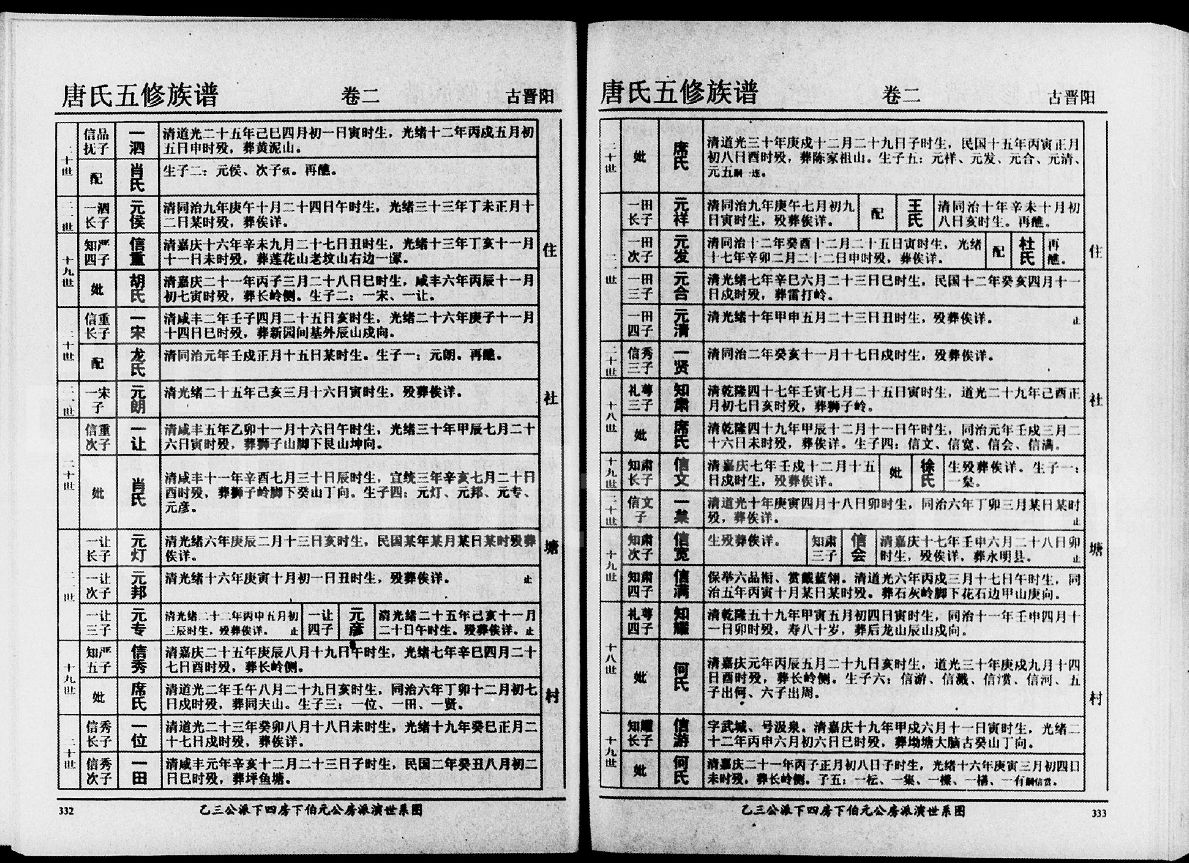 唐氏五修族谱 卷二 古晋阳
二十世
信品
抚子
一泗
清道光二十五年己巳四月初一日寅时生，光绪十二年丙戌五月初
五日申时殁，葬黄泥山。
配
肖氏
生子二：元侯、次子。再醮。
二一世
一泗
长子
元侯
清同治九年庚午十月二十四日午时生，光绪三十三年丁未正月十
二日某时殁，葬俟详。
十九世
知严
四子
信重
清嘉庆十六年辛未九月二十七日丑时生，光绪十三年丁亥十一月
十一日未时殁，葬莲花山老坟山右边一冢。
妣
胡氏
清嘉庆二十一年丙子三月二十八日巳时生，咸丰六年丙辰十一月
初七寅时殁，葬长岭侧。生子二：一宋、一让。
二十世
信重
长子
一宋
清咸丰二年壬子四月二十五日亥时生，光绪二十六年庚子十一月
十四日巳时殁，葬新园间基外辰山戌向。
配
龙氏
清同治元年壬戌正月十五日某时生。生子一：元朗。再醮。
二一世
一宋
子
元朗
清光绪二十五年己亥三月十六日寅时生，殁葬俟详。
二十世
信重
次子
一让
清咸丰五年乙卯十一月十六日午时生，光绪三十年甲辰七月二十
六日寅时殁，葬狮子山脚下艮山坤向。
妣
肖氏
清咸丰十一年辛酉七月三十日辰时生，宣统三年辛亥七月二十日
酉时殁，葬狮子岭脚下癸山丁向。生子四：元灯、元邦、元专、
元彦。
二一世
一让
长子
元灯
清光绪六年庚辰二月十三日亥时生，民国某年某月某日某时殁葬
俟详。
一让
次子
元邦
清光绪十六年庚寅十月初一日丑时生，殁葬俟详。 止
一让
三子
元专
清光绪二十二年丙申五月初
三辰时生，殁葬俟详。 止
一让
四子
元彦
清光绪二十五年己亥十一月
二十日午时生。殁葬俟详。止
十九世
知严
五子
信秀
清嘉庆二十五年庚辰八月十九日午时生，光绪七年辛巳四月二十
七日酉时殁，葬长岭侧。
妣
席氏
清道光二年壬午八月二十九日亥时生，同治六年丁卯十二月初七
日戌时殁，葬同夫山。生子三：一位、一田、一贤。
二十世
信秀
长子
一位
清道光二十三年癸卯八月十八日未时生，光绪十九年癸巳正月二
十七日戌时殁，葬俟详。
信秀
次子
一田
清咸丰元年辛亥十二月二十三日子时生，民国二年癸丑八月初二
日巳时殁，葬坪鱼塘。
住
社
塘
村
332 乙三公派下四房下伯元公房派演世系图
唐氏五修族谱 卷二 古晋阳
二十世
妣
席氏
清道光三十年庚戌十二月二十九日子时生，民国十五年丙寅正月
初八日酉时殁，葬陈家祖山。生子五：元祥、元发、元合、元清、
元五
二一世
一田
长子
元祥
清同治九年庚午七月初九
日寅时生，殁葬俟详。
配
王氏
清同治十年辛未十月初
八日亥时生。再醮。
一田
次子
元发
清同治十二年癸酉十二月二十五日寅时生，光绪
十七年辛卯二月二十二日申时殁，葬俟详。
配
杜氏
再
醮。
一田
三子
元合
清光绪七年辛巳六月二十三日巳时生，民国十二年癸亥四月十一
日戌时殁，葬雷打岭。
一田
四子
元清
清光绪十年甲申五月二十三日丑时生，殁葬俟详。 止
二十世
信秀
三子
一贤
清同治二年癸亥十一月十七日戌时生，殁葬俟详。
十八世
礼尊
三子
知肃
清乾隆四十七年壬寅七月二十五日寅时生，道光二十九年己酉正
月初七日亥时殁，葬狮子岭。
妣
席氏
清乾隆四十九年甲辰十二月十一日午时生，同治元年壬戌三月二
十六日未时殁，葬俟详。生子四：信文、信宽、信会、信满。
十九世
知肃
长子
信文
清嘉庆七年壬戌十二月十五
日戌时生，殁葬俟详。
妣
徐氏
生殁葬俟详。生子一：
一
二十世
信文
子
一
清道光十年庚寅四月十八日卯时生，同治六年丁卯三月某日某时
殁，葬俟详。 止
十九世
知肃
次子
信宽
生殁葬俟详。
知肃
三子
信会
清嘉庆十七年壬申六月二十八日卯
时生，殁俟详，葬永明县。 止
知肃
四子
信满
保举六品衔、赏戴蓝翎。清道光六年丙戌三月十七日午时生，同
治五年丙寅十月某日某时殁。葬石灰岭脚下花石边甲山庚向。
十八世
礼尊
四子
知耀
清乾隆五十九年甲寅五月初四日寅时生，同治十一年壬申四月十
一日卯时殁，寿八十岁，葬后龙山辰山戌向。
妣
何氏
清嘉庆元年丙辰五月二十九日亥时生，道光三十年庚戌九月十四
日酉时殁，葬长岭侧。生子六：信游、信溅、信滨、信河、五
子出何、六子出周。
十九世
知耀
长子
信游
字武城、号汲泉。清嘉庆十九年甲戌六月十一日寅时生，光绪二
十二年丙申六月初六日巳时殁，葬坳塘大脑古癸山丁向。
妣
何氏
清嘉庆二十一年丙子正月初八日子时生，光绪十六年庚寅三月初四日
未时殁，葬长岭侧。子五：一枟、一集、一檪、一構、一有
住
社
塘
村
乙三公派下四房下伯元公房派演世系图 333